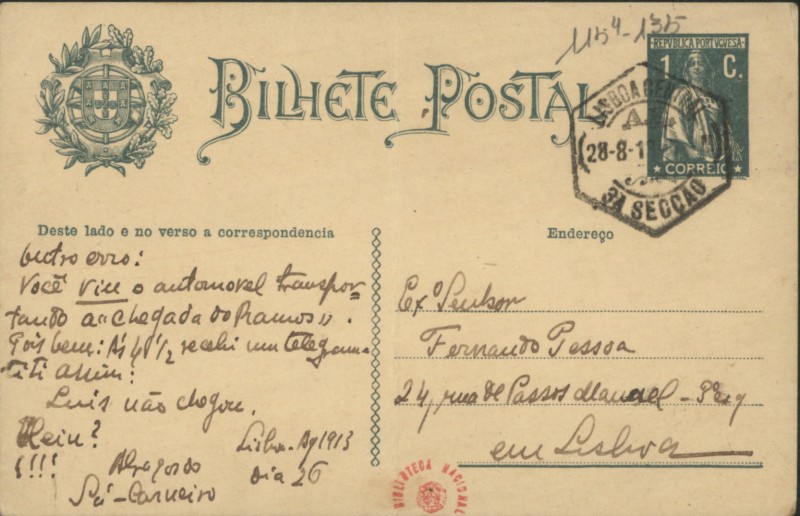 115⁴-135
REPVBLICA PORTVGVESA
1 C.
CORREIO
LISBOA CENTRAL
28-8-13
3A SECÇÃO
BILHETE POSTAL
Deste lado e no verso a correspondencia
Endereço
Outro erro:
Você viu o automovel transpor-
tando a "chegada do Ramos".
Pois bem: Ás 4 1/2 recebi um telegrama
titi assim:
Luis não chegou.
Hein?
(!!!
Lisboa - Ag 1913
dia 26
Abraços do
Sá-Carneiro
Exº Senhor
Fernando Pessoa
24, rua de Passos Manuel - 3º
em Lisboa
BIBLIOTECA NACIONAL